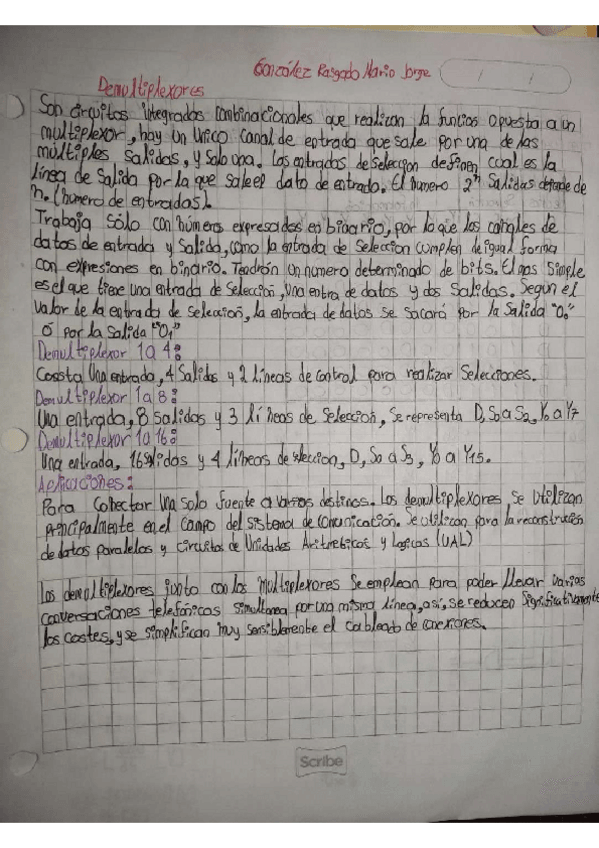 González Rasgado Mario Jorge
Demultiplexores
Son circuitos integrados combinacionales que realizan la funcion opuesta a un
multiplexor, hay un unico canal de entrada que sale por una de las
múltiples salidas, y solo una. Las entradas de selección definen cual es la
línea de salida por la que sale el dato de entrada. El numero 2ⁿ salidas depende de
n. (numero de entradas).
Trabaja sólo con números expresados en binario, por lo que los canales de
datos de entrada y salida, como la entrada de selección cumplen de igual forma
con expresiones en binario. Tendrán un numero determinado de bits. El mas simple
es el que tiene una entrada de selección, una entra de datos y dos salidas. Según el
valor de la entrada de selección, la entrada de datos se sacará por la salida "O₀"
ó por la salida "O₁"
Demultiplexor 1 a 4:
Consta una entrada, 4 salidas y 2 líneas de control para realizar selecciones.
Demultiplexor 1 a 8:
Una entrada, 8 salidas y 3 líneas de seleccion, se representa D, S0 a S2, Y0 a Y7
Demultiplexor 1 a 16:
Una entrada, 16 salidas y 4 líneas de seleccion, D, S0 a S3, Y0 a Y15.
Aplicaciones:
Para conectar una solo fuente a varios destinos. Los demultiplexores se utilizan
principalmente en el campo del sistema de comunicación. Se utilizan para la reconstrucción
de datos paralelos y circuitos de Unidades Aritmeticos y logicas (UAL)
Los demultiplexores junto con los multiplexores se emplean para poder llevar varias
conversaciones telefónicas simultanea por una misma línea, así, se reducen significativamente
los costes, y se simplifican muy sensiblemente el cableado de conexiones.
Scribe